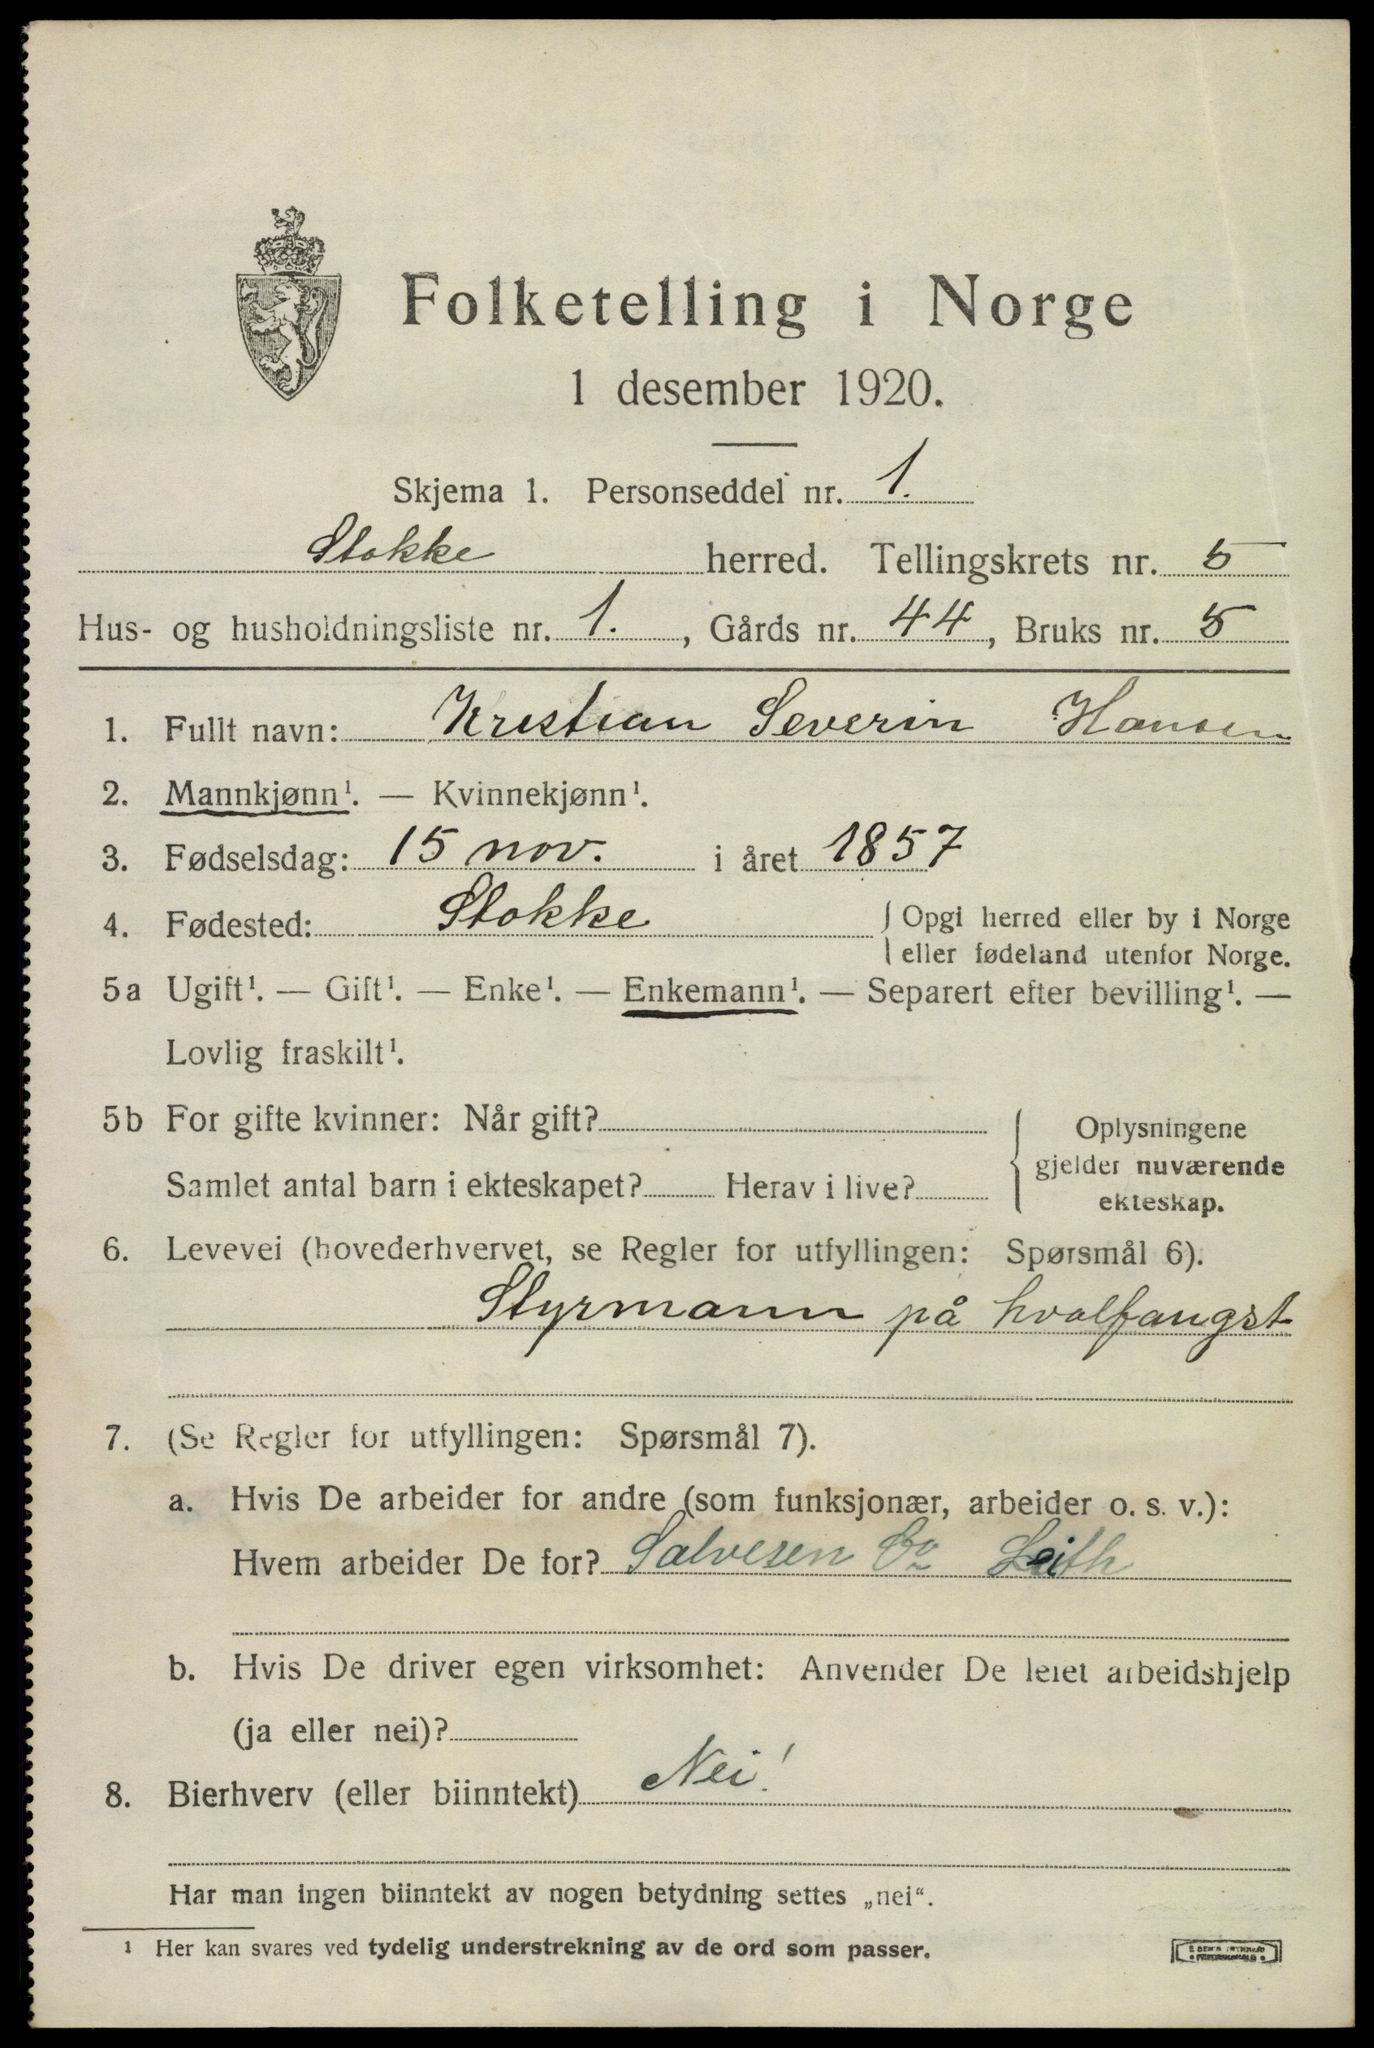 Folketelling i Norge
1 desember 1920.
Skjema 1. Personseddel nr. 1.
Stokke herred. Tellingskrets nr. 5
Hus- og husholdningsliste nr. 1., Gårds nr. 44, Bruks nr. 5
1. Fullt navn: Kristian Severin Hansen
2. Mannkjønn¹. — Kvinnekjønn¹.
3. Fødselsdag: 15 nov. i året 1857
4. Fødested: Stokke { Opgi herred eller by i Norge
eller fødeland utenfor Norge.
5a Ugift¹. — Gift¹. — Enke¹. — Enkemann¹. — Separert efter bevilling¹. —
Lovlig fraskilt¹.
5b For gifte kvinner: Når gift?
Samlet antal barn i ekteskapet? Herav i live?
Oplysningene
gjelder nuværende
ekteskap.
6. Levevei (hovederhvervet, se Regler for utfyllingen: Spørsmål 6).
Styrmann på hvalfangst
7. (Se Regler for utfyllingen: Spørsmål 7).
a. Hvis De arbeider for andre (som funksjonær, arbeider o. s. v.):
Hvem arbeider De for? Salvesen Co Leith
b. Hvis De driver egen virksomhet: Anvender De leiet arbeidshjelp
(ja eller nei)?
8. Bierhverv (eller biinntekt) Nei!
Har man ingen biinntekt av nogen betydning settes „nei“.
¹ Her kan svares ved tydelig understrekning av de ord som passer.